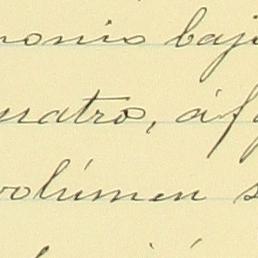 onio baj
uatro, á f
volúmen s